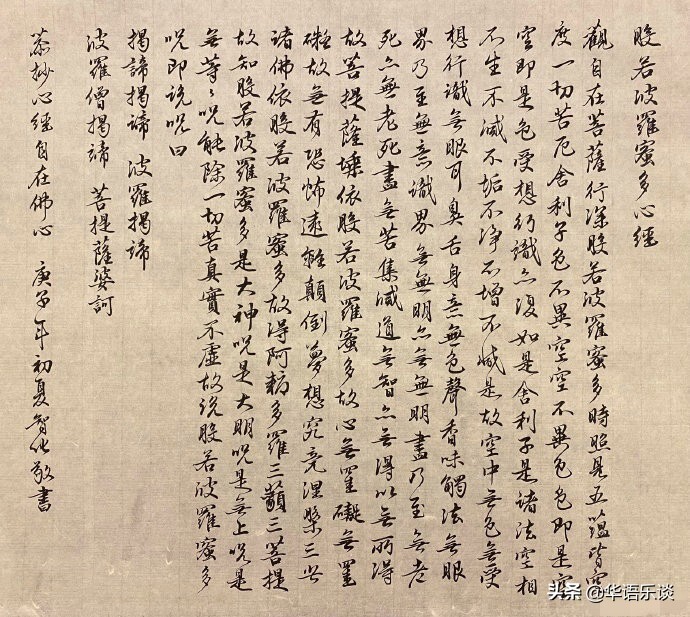 般若波羅蜜多心經
觀自在菩薩行深般若波羅蜜多時照見五蘊皆空
度一切苦厄舍利子色不異空空不異色色即是空
空即是色受想行識亦復如是舍利子是諸法空相
不生不滅不垢不淨不增不減是故空中無色無受
想行識無眼耳鼻舌身意無色聲香味觸法無眼
界乃至無意識界無無明亦無無明盡乃至無老
死亦無老死盡無苦集滅道無智亦無得以無所得
故菩提薩埵依般若波羅蜜多故心無罣礙無罣
礙故無有恐怖遠離顛倒夢想究竟涅槃三世
諸佛依般若波羅蜜多故得阿耨多羅三藐三菩提
故知般若波羅蜜多是大神咒是大明咒是無上咒是
無等々咒能除一切苦真實不虛故說般若波羅蜜多
咒即說咒曰
揭諦揭諦 波羅揭諦
波羅僧揭諦 菩提薩婆訶
恭抄心經自在佛心 庚子年初夏智化敬書
头条 @华语乐谈